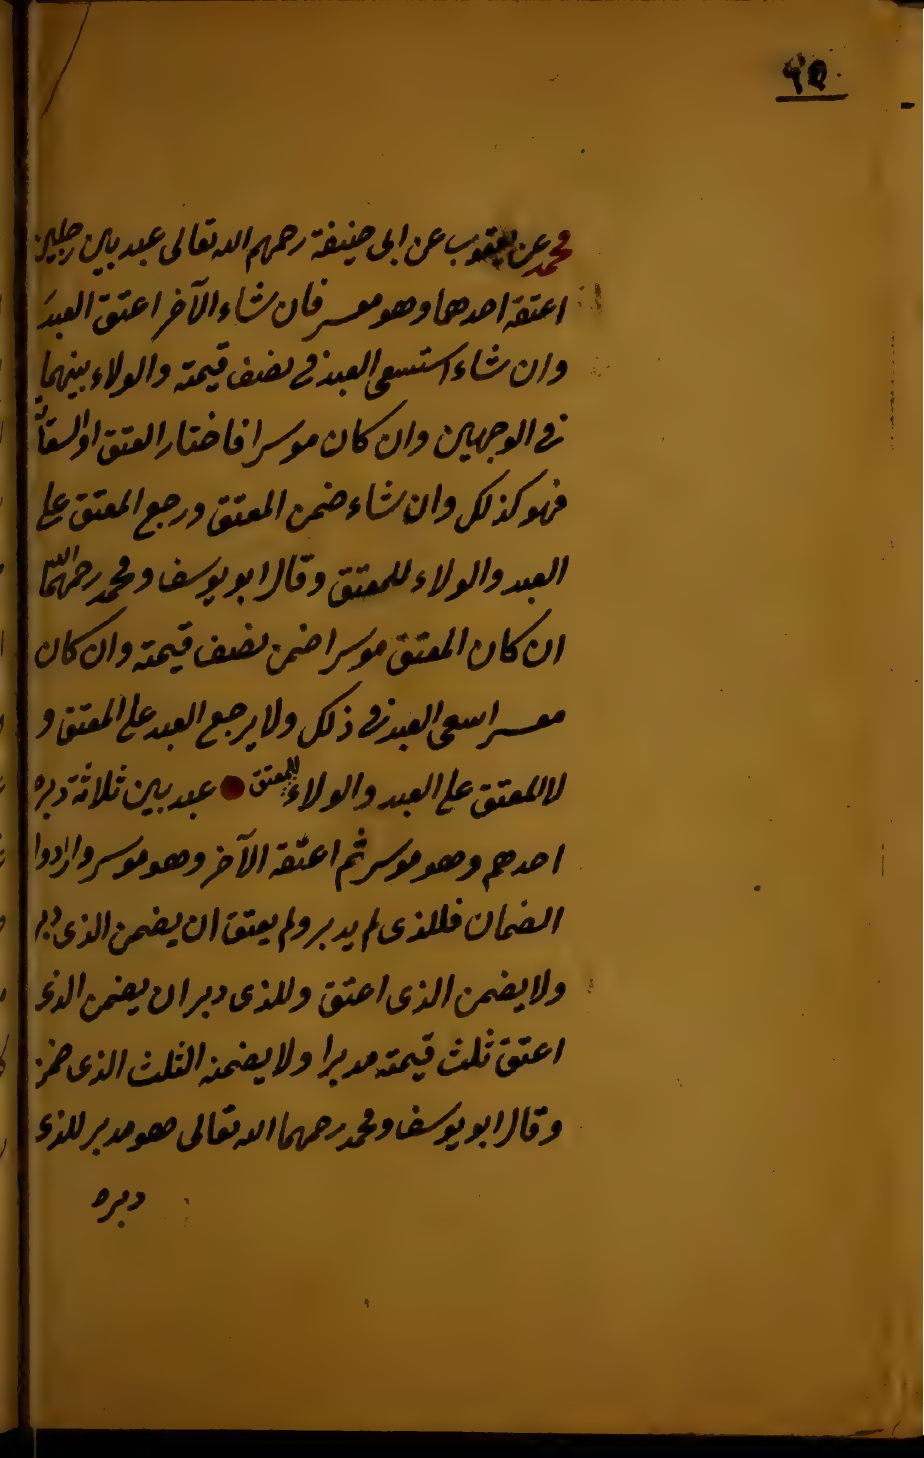 ٩٥
محمد عن يعقوب عن ابى حنيفة رحمهم الله تعالى عبد بين رجلين
اعتقه احدهما وهو معسر فان شاء الآخر اعتق العبد
وان شاء استسعى العبد فى نصف قيمته والولاء بينهما
فى الوجهين وان كان موسرا فاختار العتق او السعاية
فهو كذلك وان شاء ضمن المعتق ورجع المعتق على
العبد والولاء للمعتق وقال ابو يوسف ومحمد رحمهما الله
ان كان المعتق موسرا ضمن نصف قيمته وان كان
معسرا سعى العبد فى ذلك ولا يرجع العبد على المعتق و
لا للمعتق على العبد والولاء للمعتق عبد بين ثلاثة دبره
احدهم وهو موسر ثم اعتقه الآخر وهو موسر وارادوا
الضمان فللذى لم يدبر ولم يعتق ان يضمن الذى دبر
ولا يضمن الذى اعتق وللذى دبر ان يضمن الذى
اعتق ثلث قيمته مدبرا ولا يضمنه الثلث الذى ضمن
وقال ابو يوسف ومحمد رحمهما الله تعالى هو مدبر للذى
دبره